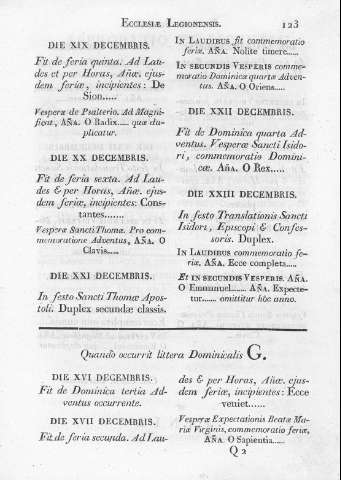 Ecclesiæ Legionensis. 123
DIE XIX DECEMBRIS.
Fit de feria quinta. Ad Lau-
des et per Horas, Añæ. ejus-
dem feriæ, incipientes: De
Sion.....
Vesperæ de Psalterio. Ad Magni-
ficat, AÑA. O Radix..... quæ du-
plicatur.
DIE XX DECEMBRIS.
Fit de feria sexta. Ad Lau-
des & per Horas, Añæ. ejus-
dem feriæ, incipientes: Cons-
tantes.......
Vesperæ Sancti Thomæ. Pro com-
memoratione Adventus, AÑA. O
Clavis.....
DIE XXI DECEMBRIS.
In festo Sancti Thomæ Apos-
toli. Duplex secundæ classis.
In Laudibus fit commemoratio
feriæ. AÑA. Nolite timere.....
In secundis Vesperis comme-
moratio Dominicæ quartæ Adven-
tus. AÑA. O Oriens.....
DIE XXII DECEMBRIS.
Fit de Dominica quarta Ad-
ventus. Vesperæ Sancti Isido-
ri, commemoratio Domini-
cæ. Aña. O Rex.....
DIE XXIII DECEMBRIS.
In festo Translationis Sancti
Isidori, Episcopi & Confes-
soris. Duplex.
In Laudibus commemoratio fe-
riæ. AÑA. Ecce completa.....
Et in secundis Vesperis. AÑA.
O Emmanuel....... AÑA. Expecte-
tur....... omittitur hôc anno.
Quando occurrit littera Dominicalis G.
DIE XVI DECEMBRIS.
Fit de Dominica tertia Ad-
ventus occurrente.
DIE XVII DECEMBRIS.
Fit de feria secunda. Ad Lau-
des & per Horas, Añæ. ejus-
dem feriæ, incipientes: Ecce
veniet......
Vesperæ Expectationis Beatæ Ma-
riæ Virginis, commemoratio feriæ,
AÑA. O Sapientia.....
Q 2